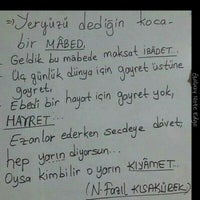 =) Yeryüzü dediğin koca
bir MÂBED,
- Geldik bu mâbede maksat İBÂDET..
- Üç günlük dünya için gayret üstüne
gayret,
- Ebedî bir hayat için gayret yok,
HAYRET...
Ezanlar ederken secdeye davet,
hep yarın diyorsun...
Oysa kimbilir o yarın KIYÂMET..
(N. Fazıl KISAKÜREK)